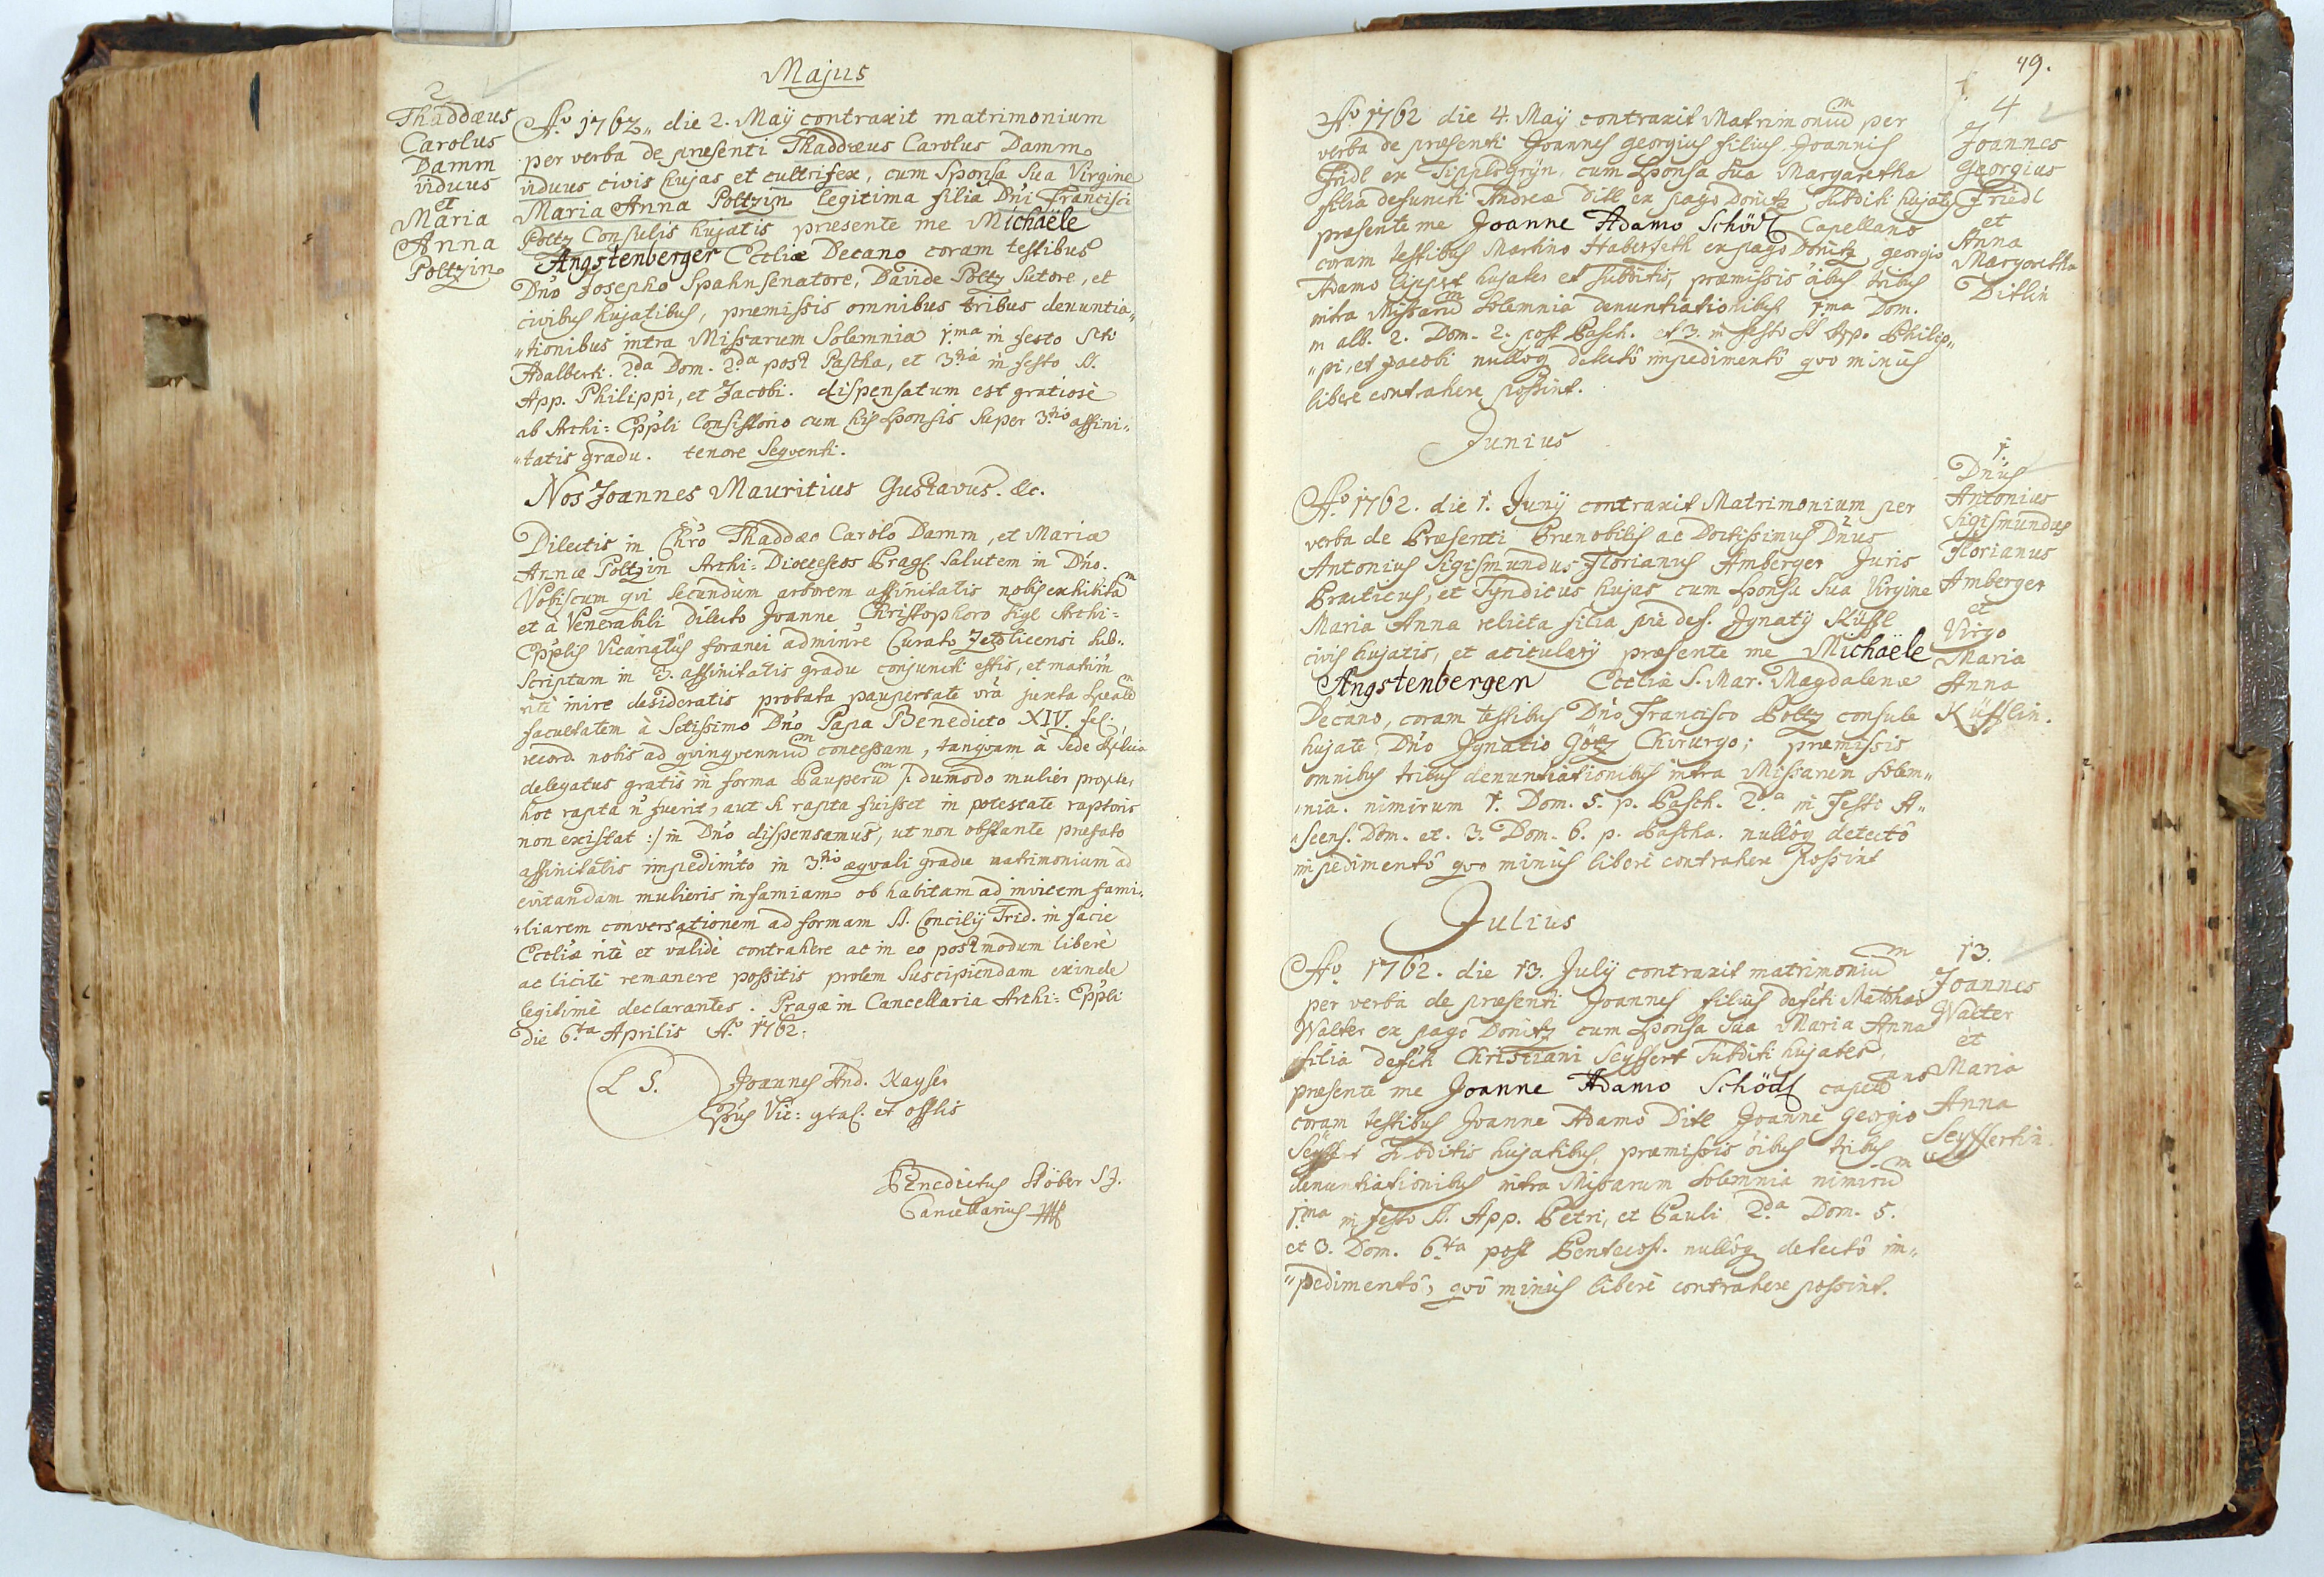 Majus
2
Thaddæus
Carolus
Damm
viduus
et
Maria
Anna
Poltzin
Aõ 1762, die 2. Maÿ contraxit matrimonium
per verba de præsenti Thaddæus Carolus Damm
viduus civis hujas et cultrifex, cum Sponsa Sua Virgine
Maria Anna Poltzin legitima filia Dni Francisci
Poltz Consulis hujatis præsente me Michaële
Angstenberger Ecclïæ Decano coram testibus
Dno Josepho Spahn senatore, Davide Poltz Sutore, et
civibus hujatibus, præmissis omnibus tribus denuntia„
„tionibus intra Missarum Solemnia 1.ma in festo Scti
Adalberti. 2da Dom. 2da post Pascha, et 3tia in festo SS.
App. Philippi, et Jacobi. dispensatum est gratiosè
ab Archi= Eppli Consistorio cum his Sponsis Super 3tio affini„
„tatis gradu. tenore Seqventi.
Nos Joannes Mauritius Gustavus. &c.
Dilectis in Chro Thaddæo Carolo Damm, et Maria
Annæ Poltzin Archi= Dioeceseos Prag. Salutem in Dno.
Vobiscum qvi Secundùm arborem affinitatis nobis exhibitam
et à Venerabili dilecto Joanne Christophoro Sigl Archi=
Epplis Vicariatûs foranei adminre Curato Zetlicensi Sub=
scriptam in 3. affinitatis gradu conjuncti estis, et matrim
ritè inire desideratis probata paupertate vra juxta Spealem
facultatem à Sctissimo Dno Papa Benedicto XIV. fel:
record. nobis ad qvinqvennium concessam, tanqvam à Sede Aplica
delegatus gratis in forma Pauperum /: dumodo mulier propter
hoc rapta n fuerit, aut si rapta fuisset in potestate raptoris
non existat :/ in Dno dispensamus, ut non obstante prefato
affinitatis impedimto in 3tio æqvali gradu matrimonium ad
evitandam mulieris infamiam ob habitam ad invicem fami„
„liarem conversationem ad formam SS. Concilÿ Trid. in facie
Ecclïæ ritè et validè contrahere ac in eo postmodum liberè
ac licitè remanere possitis prolem Suscipiendam exinde
legitimè declarantes. Pragæ in Cancellaria Archi= Eppli
die 6ta Aprilis Aõ 1762.
L S.
Joannes And. Kayser
Eppus Vic: gral: et offlis
Benedictus Stöber SJ.
Cancellarius
49.
4
Joannes
Georgius
Friedl
et
Anna
Margaretha
Ditlin
Aõ 1762 die 4. Maÿ contraxit Matrimonium per
verba de præsenti Joannes georgius filius Joannis
Fridl ex Tipplsgrÿn, cum Sponsa Sua Margaretha
filia defuncti Andreæ Ditl ex pago Donitz, Subditi hujatis
præsente me Joanne Adamo Schödl Capellano
coram testibus Martino Haberseth ex pago Donitz georgio
Adamo Lippert hujates et Subditis, præmissis oibus tribus
intra Missarum Solemnia denuntiationibus 1.ma Dom.
in alb. 2. Dom. 2. post Pasch. et 3. in festo SS App. Philip„
„pi, et Jacobi nullôq detectô impedimentô qvo minùs
liberè contrahere possint.
Junius
1.
Dnus
Antonius
Sigismundus
Florianus
Amberger
et
Virgo
Maria
Anna
Küfflin.
Aõ 1762. die 1. Junÿ contraxit Matrimonium per
verba de Præsenti Prænobilis ac Doctissimus Dnus
Antonius Sigismundus Florianus Amberger Juris
Practicus, et Syndicus hujas cum Sponsa Sua Virgine
Maria Anna relicta filia piè def. Ignatÿ Küffl
civis hujatis, et acicularÿ præsente me Michaële
Angstenberger Ecclïæ S. Mar. Magdalenæ
Decano, coram testibus Dno Francisco Poltz consule
hujate, Dno Ignatio Götz Chirurgo; præmissis
omnibus tribus denuntiationibus intra Missarum Solem„
„nia. nimirum 1. Dom. 5. p. Pasch. 2da in Festo A„
„scens. Dom. et. 3. Dom. 6. p. Pascha. nullôq detectô
impedimentô qvo minùs liberè contrahere Possint
Julius
13.
Joannes
Walter
et
Maria
Anna
Seyffertin.
Aõ 1762. die 13. Julÿ contraxit matrimonium
per verba de præsenti Joannes filius defcti Matthæi
Walter ex pago Donitz cum Sponsa Sua Maria Anna
filia defcti Christiani Seyffert Subditi hujates,
præsente me Joanne Adamo Schödl capellano
coram testibus Joanne Adamo Ditl Joanne georgio
Seyffert Subditis hujatibus, præmissis oibus tribus
denuntiationibus intra Missarum Solemnia nimirum
1.ma in festo SS. App. Petri, et Pauli 2da Dom. 5.
et 3. Dom. 6.ta post Pentecost. nullôq detectô im„
„pedimentô, qvô minùs liberè contrahere possint.